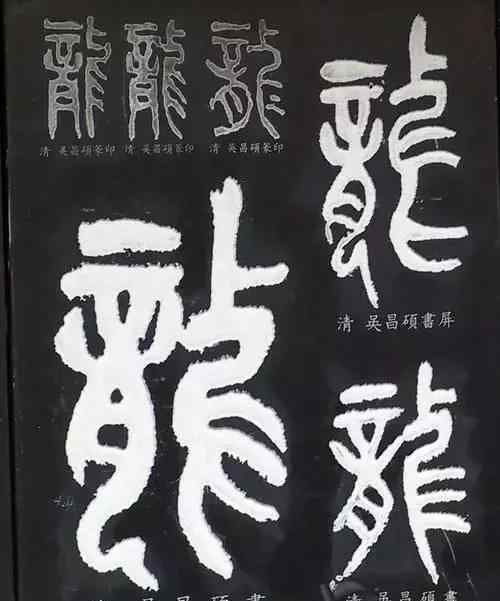 龍 龍 龍
清 吳昌碩篆印 清 吳昌碩篆印 清 吳昌碩篆印
龍
清 吳昌碩書屏
龍
吳昌碩書
龍
清 吳昌碩書